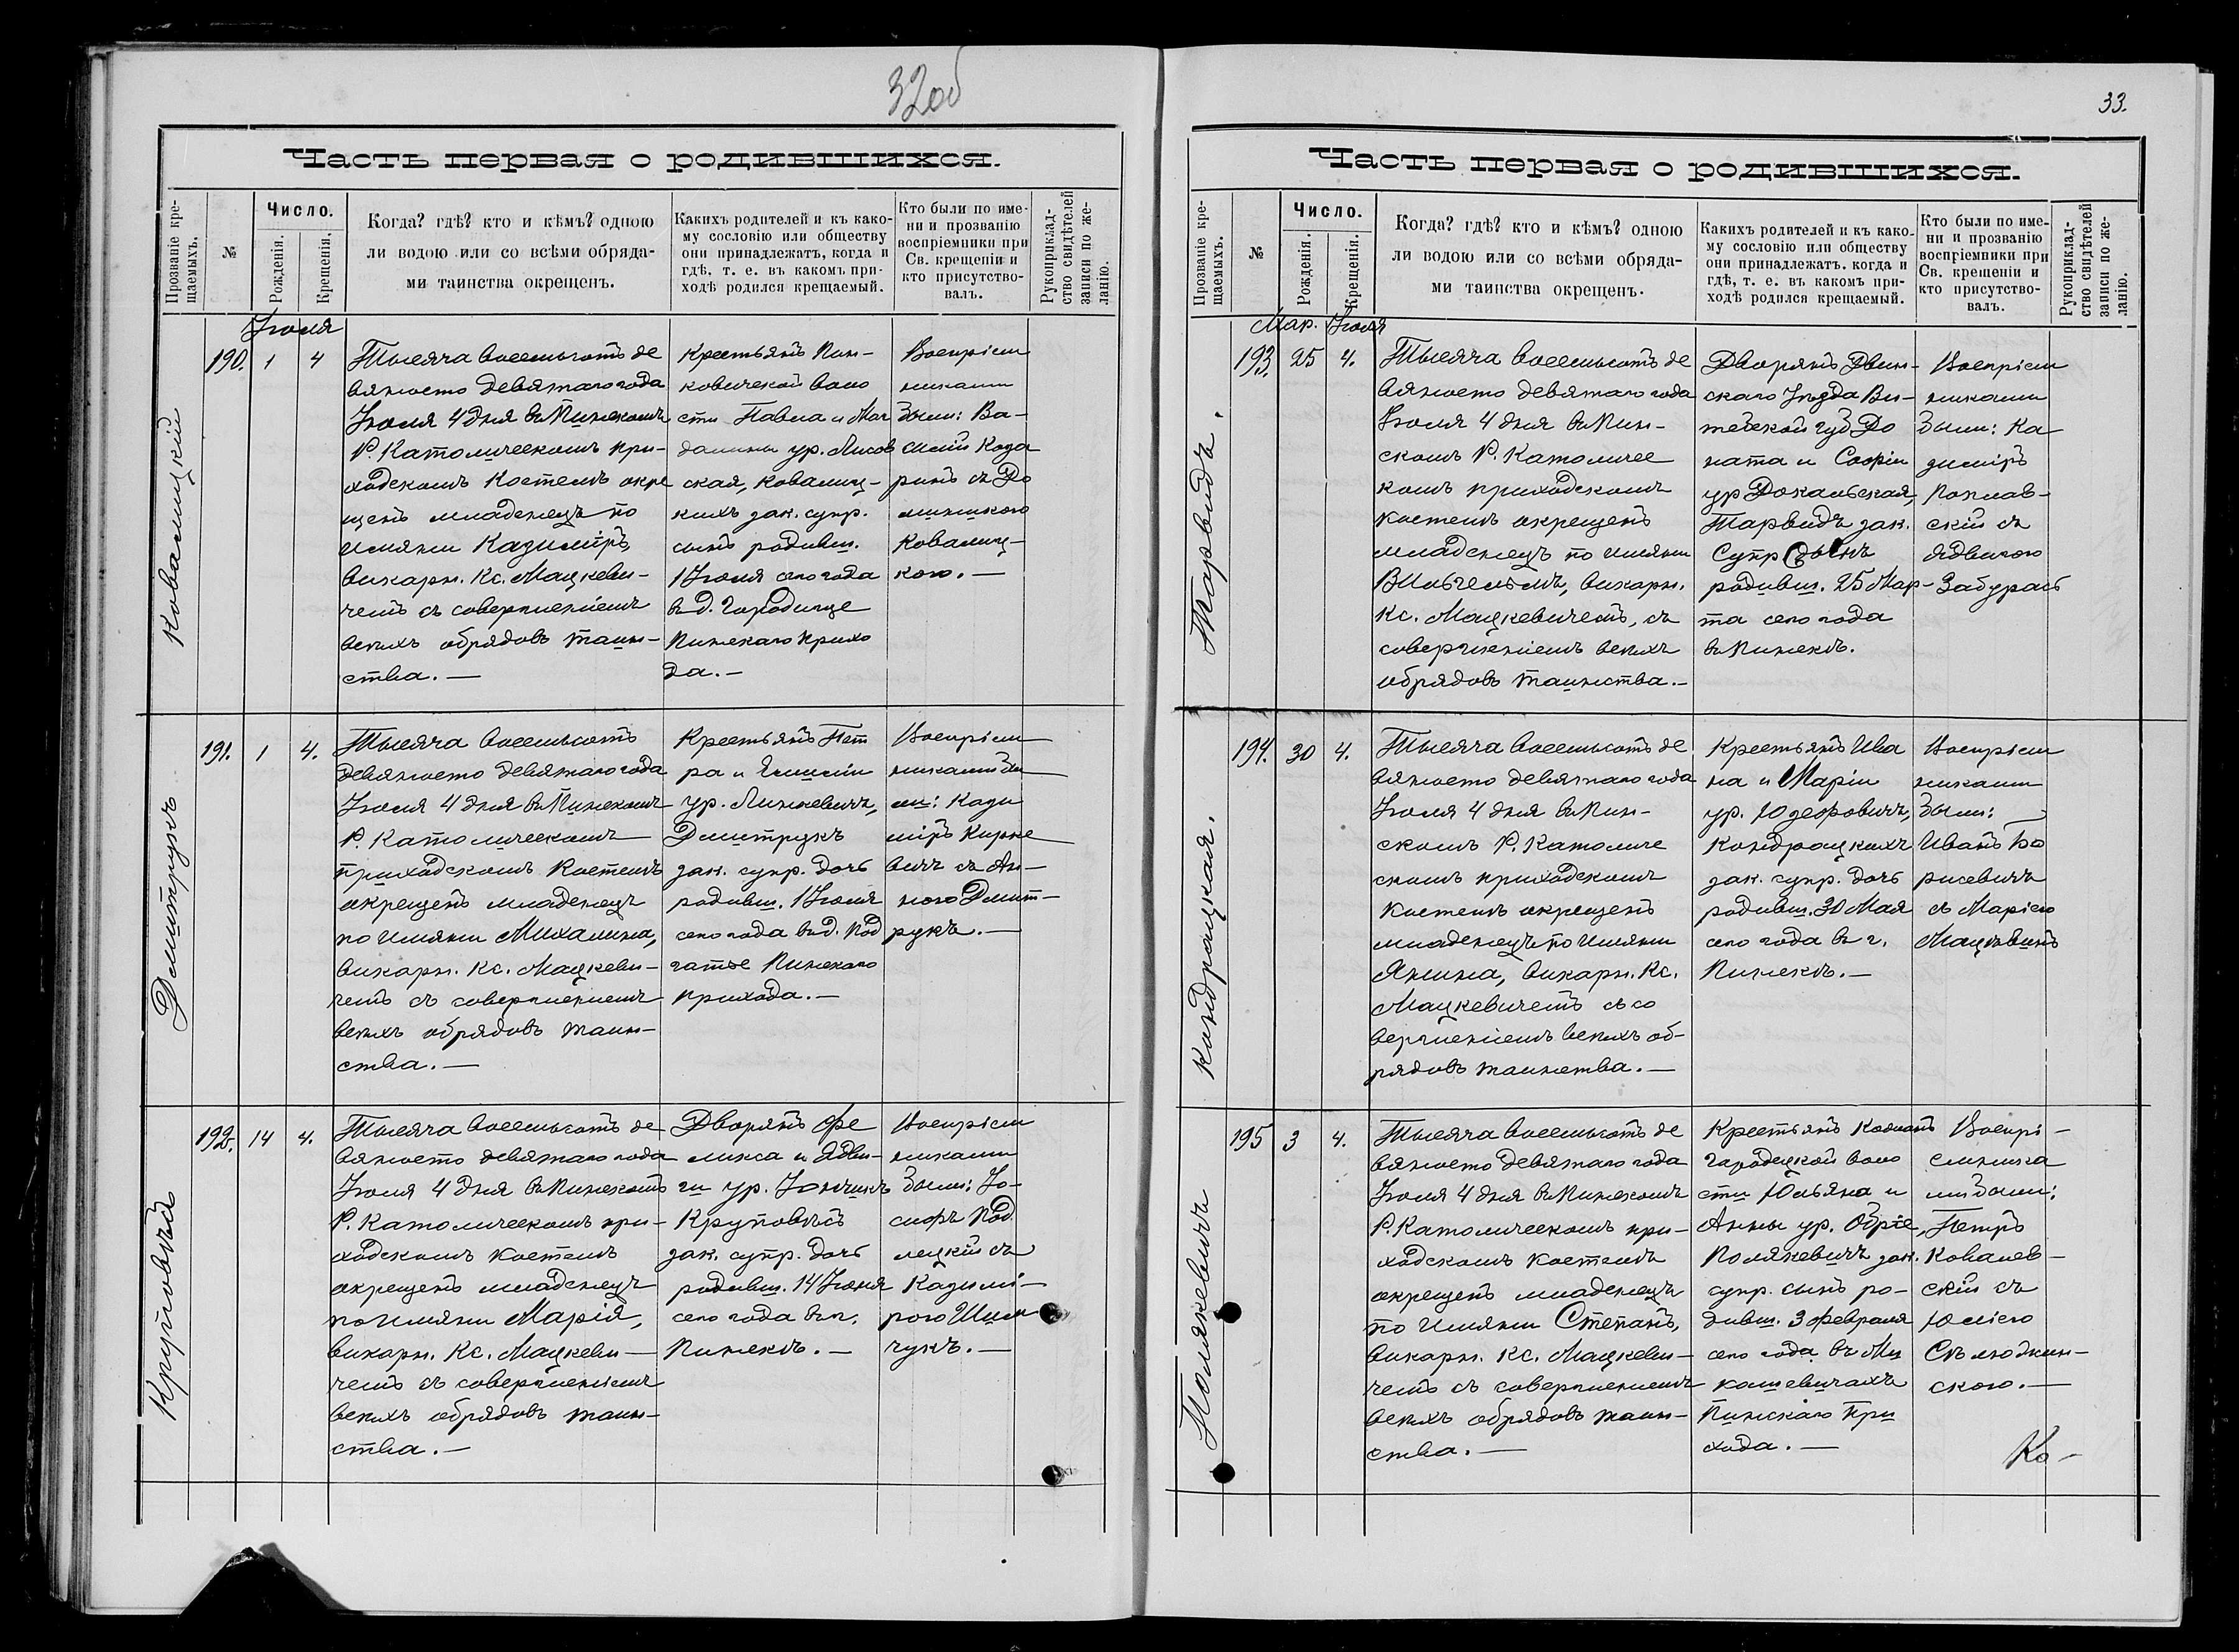 32об
Часть первая о родившихся.
Прозваніе кре-
щаемыхъ.
№
Число.
Рожденія.
Крещенія.
Когда? гдѣ? кто и кѣмъ? одною
ли водою или со всѣми обряда-
ми таинства окрещенъ.
Какихъ родителей и къ како-
му сословію или обществу
они принадлежатъ, когда и
гдѣ, т. е. въ какомъ при-
ходѣ родился крещаемый.
Кто были по име-
ни и прозванію
воспріемники при
Св. крещеніи и
кто присутство-
валъ.
Рукоприклад-
ство свидѣтелей
записи по же-
ланію.
Іюля
Ковалицкій
190. 1 4
Тысяча восемьсотъ де
вяносто девятаго года
Іюля 4 дня въ Пинскомъ
Р. Католическомъ при-
ходскомъ Костелѣ окре
щенъ младенецъ по
имяни Казиміръ,
викарн. Кс. Мацкеви-
чемъ съ совершеніемъ
всѣхъ обрядовъ таин-
ства.—
Крестьянъ Пин-
ковичской воло
сти Павла и Маг
далины ур. Лисов
ская, Ковалиц-
кихъ зак. супр.
сынъ родивш.
1 Іюля сего года
въ д. Городище
Пинскаго прихо
да.—
Воспріем
никами
были: Ва-
силій Коза
ринъ съ До
миникою
Ковалиц-
кою.—
Дмитрукъ
191. 1 4.
Тысяча восемьсотъ
девяносто девятаго года
Іюля 4 дня въ Пинскомъ
Р. Католическомъ
приходскомъ Костелѣ
окрещенъ младенецъ
по имяни Михалина,
викарн. Кс. Мацкеви-
чемъ съ совершениемъ
всѣхъ обрядовъ таин-
ства.—
Крестьянъ Пет
ра и Емиліи
ур. Линкевичъ,
Дмитрукъ
зак. супр. дочь
родивш. 1 Іюля
сего года въ д. Под
гатье Пинскаго
прихода.—
Воспріем
никами бы
ли: Кази
міръ Кирке
вичъ съ Ан-
ною Дмит-
рукъ.—
Круповѣсъ
192. 14 4.
Тысяча восемьсотъ де
вяносто девятаго года
Іюля 4 дня въ Пинскомъ
Р. Католическомъ при-
ходскомъ костелѣ
окрещенъ младенецъ
по имяни Марія,
викарн. Кс. Мацкеви-
чемъ съ совершеніемъ
всѣхъ обрядовъ таин-
ства.—
Дворянъ Фе
ликса и Ядви-
ги ур. Іончикъ
Круповѣсъ
зак. супр. дочь
родивш. 14 Іюня
сего года въ г.
Пинскѣ.—
Воспріем
никами
были: Іо-
сифъ Под
лецкій съ
Казимі-
рою Шим
чукъ.—
33.
Часть первая о родившихся.
Прозваніе кре-
щаемыхъ.
№
Число.
Рожденія.
Крещенія.
Когда? гдѣ? кто и кѣмъ? одною
ли водою или со всѣми обряда-
ми таинства окрещенъ.
Какихъ родителей и къ како-
му сословію или обществу
они принадлежатъ. когда и
гдѣ, т. е. въ какомъ при-
ходѣ родился крещаемый.
Кто были по име-
ни и прозванію
воспріемники при
Св. крещеніи и
кто присутство-
валъ.
Рукоприклад-
ство свидѣтелей
записи по же-
ланію.
Мар. Іюля
Тарвидъ.
193. 25 4.
Тысяча восемьсотъ де
вяносто девятаго года
Іюля 4 дня въ Пин-
скомъ Р. Католичес
комъ приходскомъ
костелѣ окрещенъ
младенецъ по имяни
Вильгельмъ, викарн.
Кс. Мацкевичемъ, съ
совершеніемъ всѣхъ
обрядовъ таинства.—
Дворянъ Двин-
скаго Уѣзда Ви-
тебской губ До
ната и Софіи
ур Докальская,
Тарвидъ зак.
супр сынъ
родивш. 25 Мар-
та сего года
въ Пинскѣ.
Воспріем
никами
были: Ка
зиміръ
Поплав-
скій съ
Ядвигою
Забурась
Кондрацкая.
194. 30 4.
Тысяча восемьсотъ де
вяносто девятаго года
Іюля 4 дня въ Пин-
скомъ Р. Католиче
скомъ приходскомъ
костелѣ окрещенъ
младенецъ по имяни
Янина, викарн. Кс.
Мацкевичемъ съ со
вершеніемъ всѣхъ об-
рядовъ таинства.—
Крестьянъ Ива
на и Маріи
ур. Юзефовичъ,
Кондрацкихъ
зак. супр. дочь
родивш. 30 Мая
сего года въ г.
Пинскѣ.—
Воспріем
никами
были:
Иванъ Бо
рисевичъ
съ Маріею
Мацкѣвинъ
Полякевичъ
195 3 4.
Тысяча восемьсотъ де
вяносто девятаго года
Іюля 4 дня въ Пинскомъ
Р. Католическомъ при-
ходскомъ костелѣ
окрещенъ младенецъ
по имяни Степанъ,
викарн. Кс. Мацкеви-
чемъ съ совершениемъ
всѣхъ обрядовъ таин-
ства.—
Крестьянъ
Городецкой воло
сти Юльяна и
Анны ур.
Полякевичъ зак.
супр. сынъ ро-
дивш. 3 февраля
сего года въ Ми
кашевичахъ
Пинскаго при
хода.—
Воспрі-
емника
ми были:
Петръ
Ковалев-
скій съ
Юліею
скою.—
Ко-